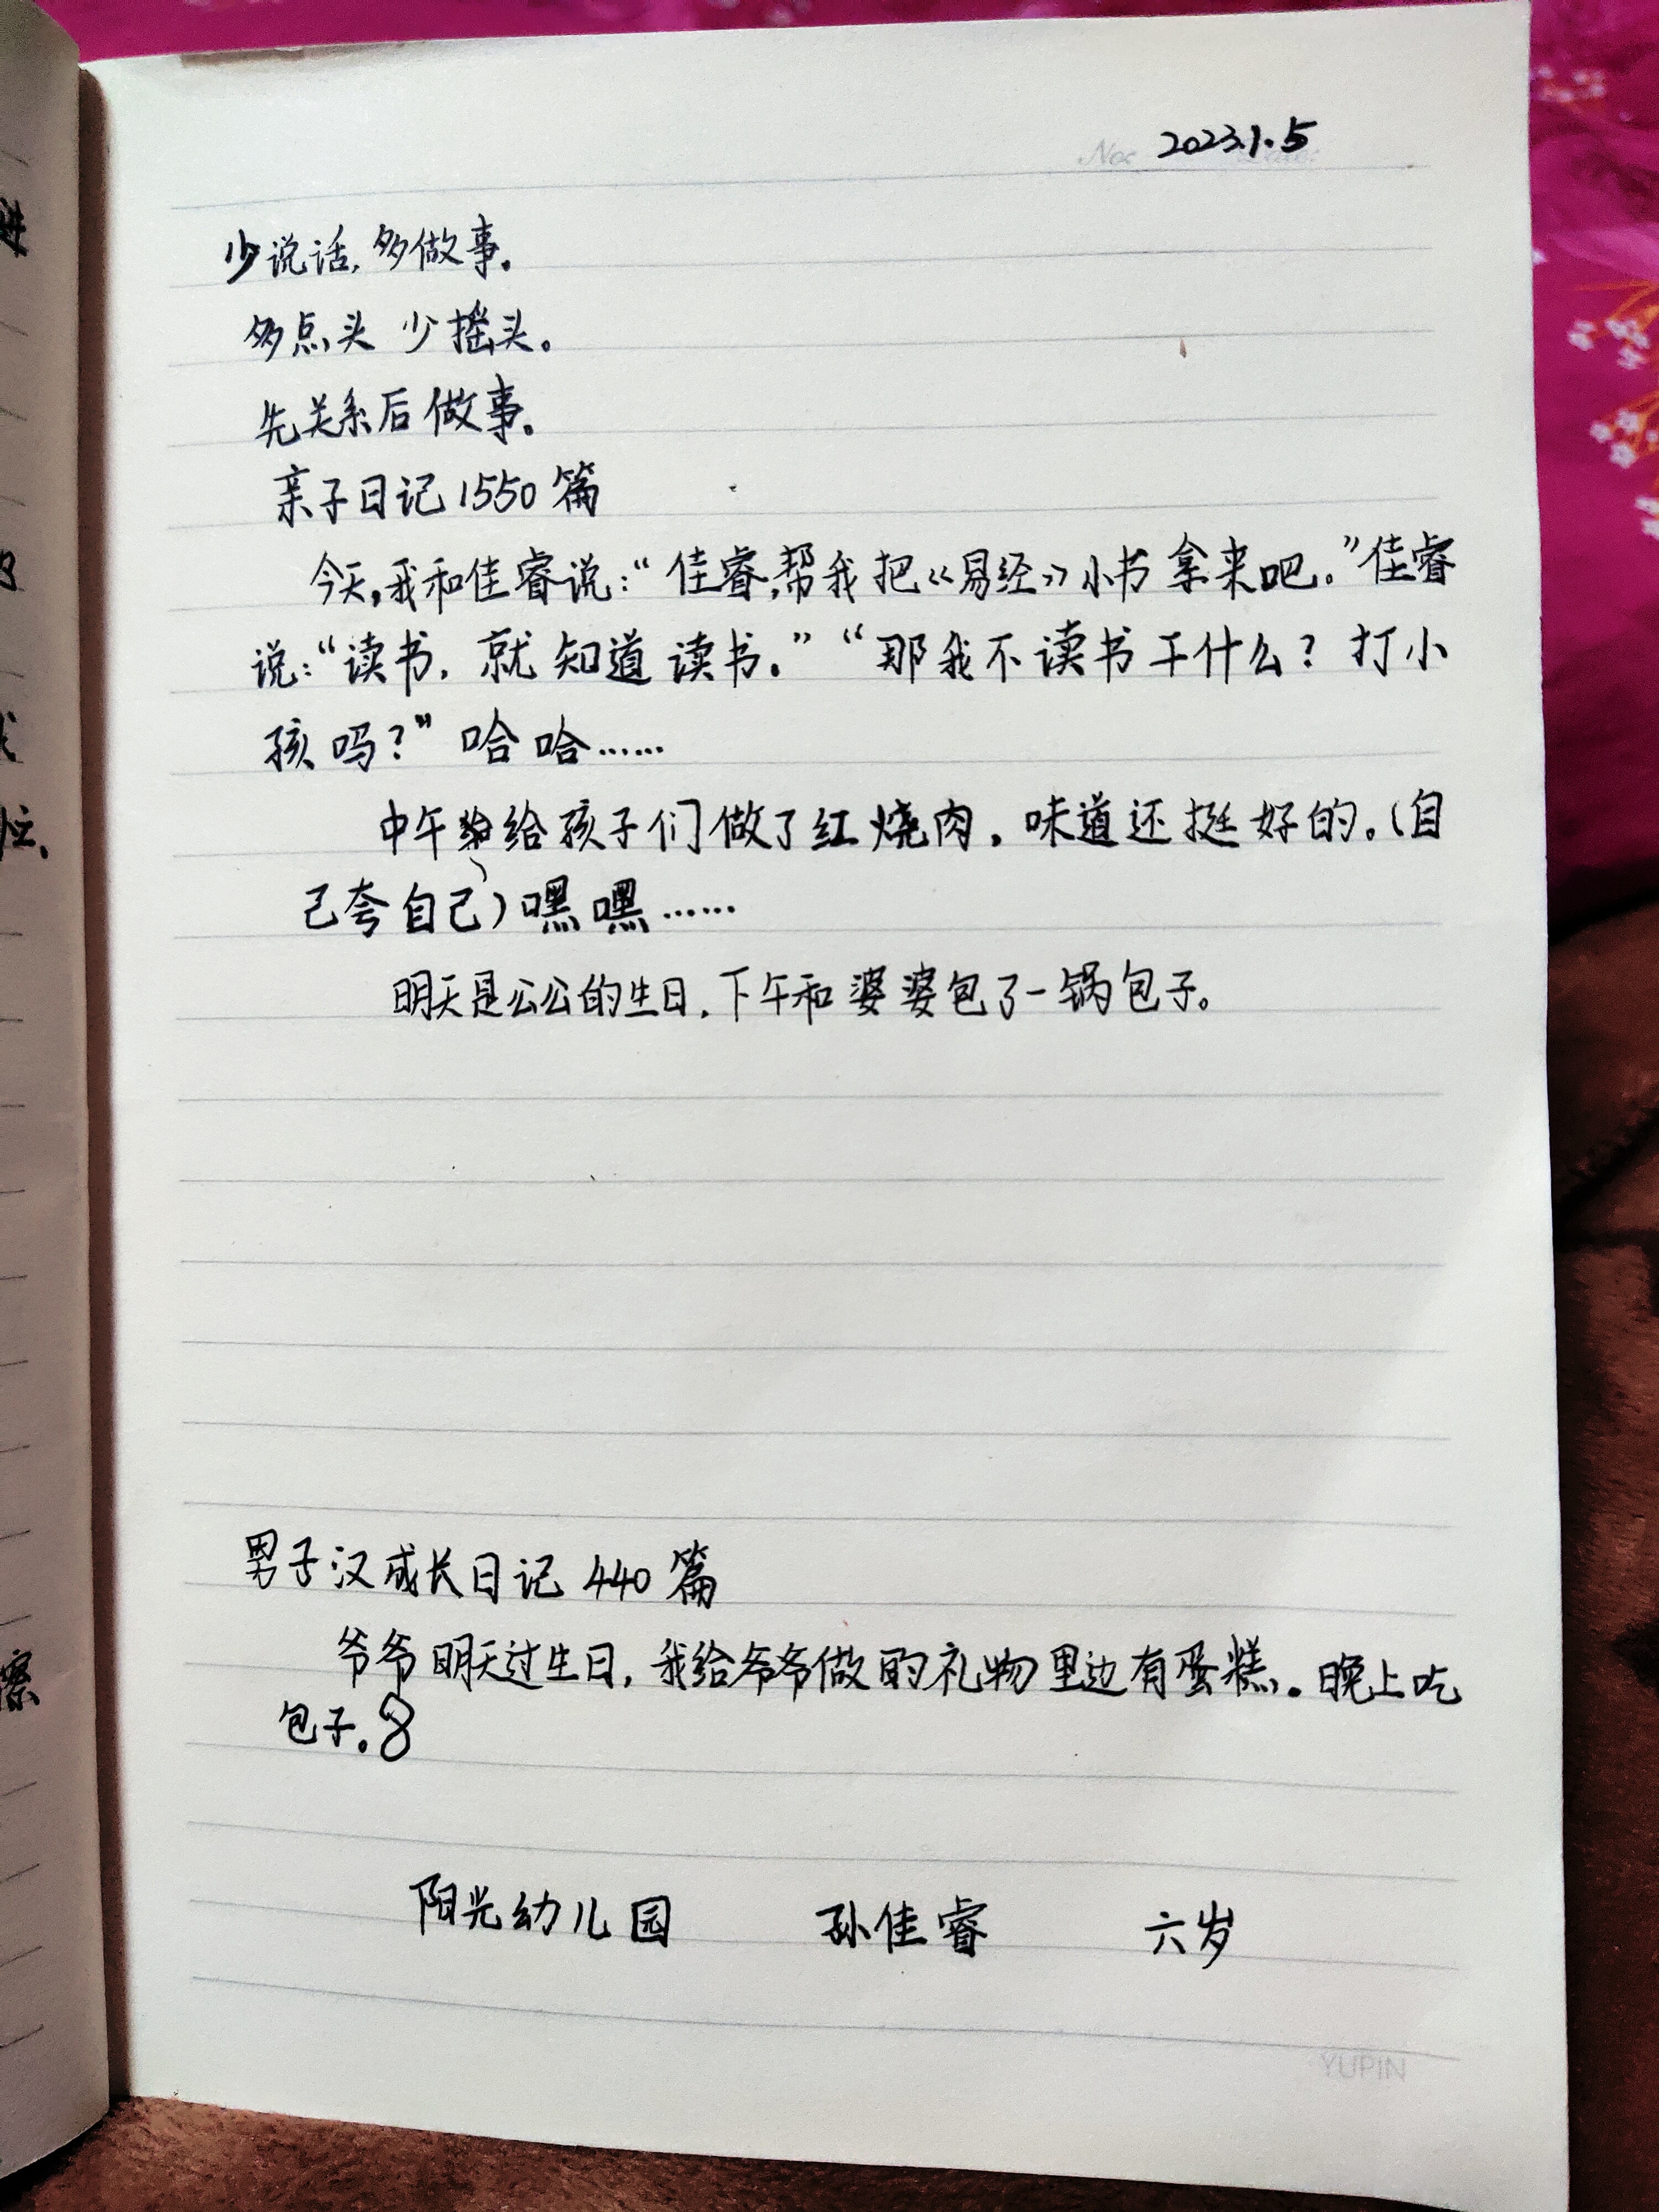 No: 2023.1.5
少说话，多做事。
多点头 少摇头。
先关系后做事。
亲子日记1550篇
今天，我和佳睿说：“佳睿，帮我把《易经》小书拿来吧。”佳睿
说：“读书，就知道读书。”“那我不读书干什么？打小
孩吗？”哈哈……
中午给孩子们做了红烧肉，味道还挺好的。（自
己夸自己）嘿嘿……
明天是公公的生日，下午和婆婆包了一锅包子。
男子汉成长日记440篇
爷爷明天过生日，我给爷爷做的礼物里边有蛋糕。晚上吃
包子。8
阳光幼儿园 孙佳睿 六岁
YUPIN